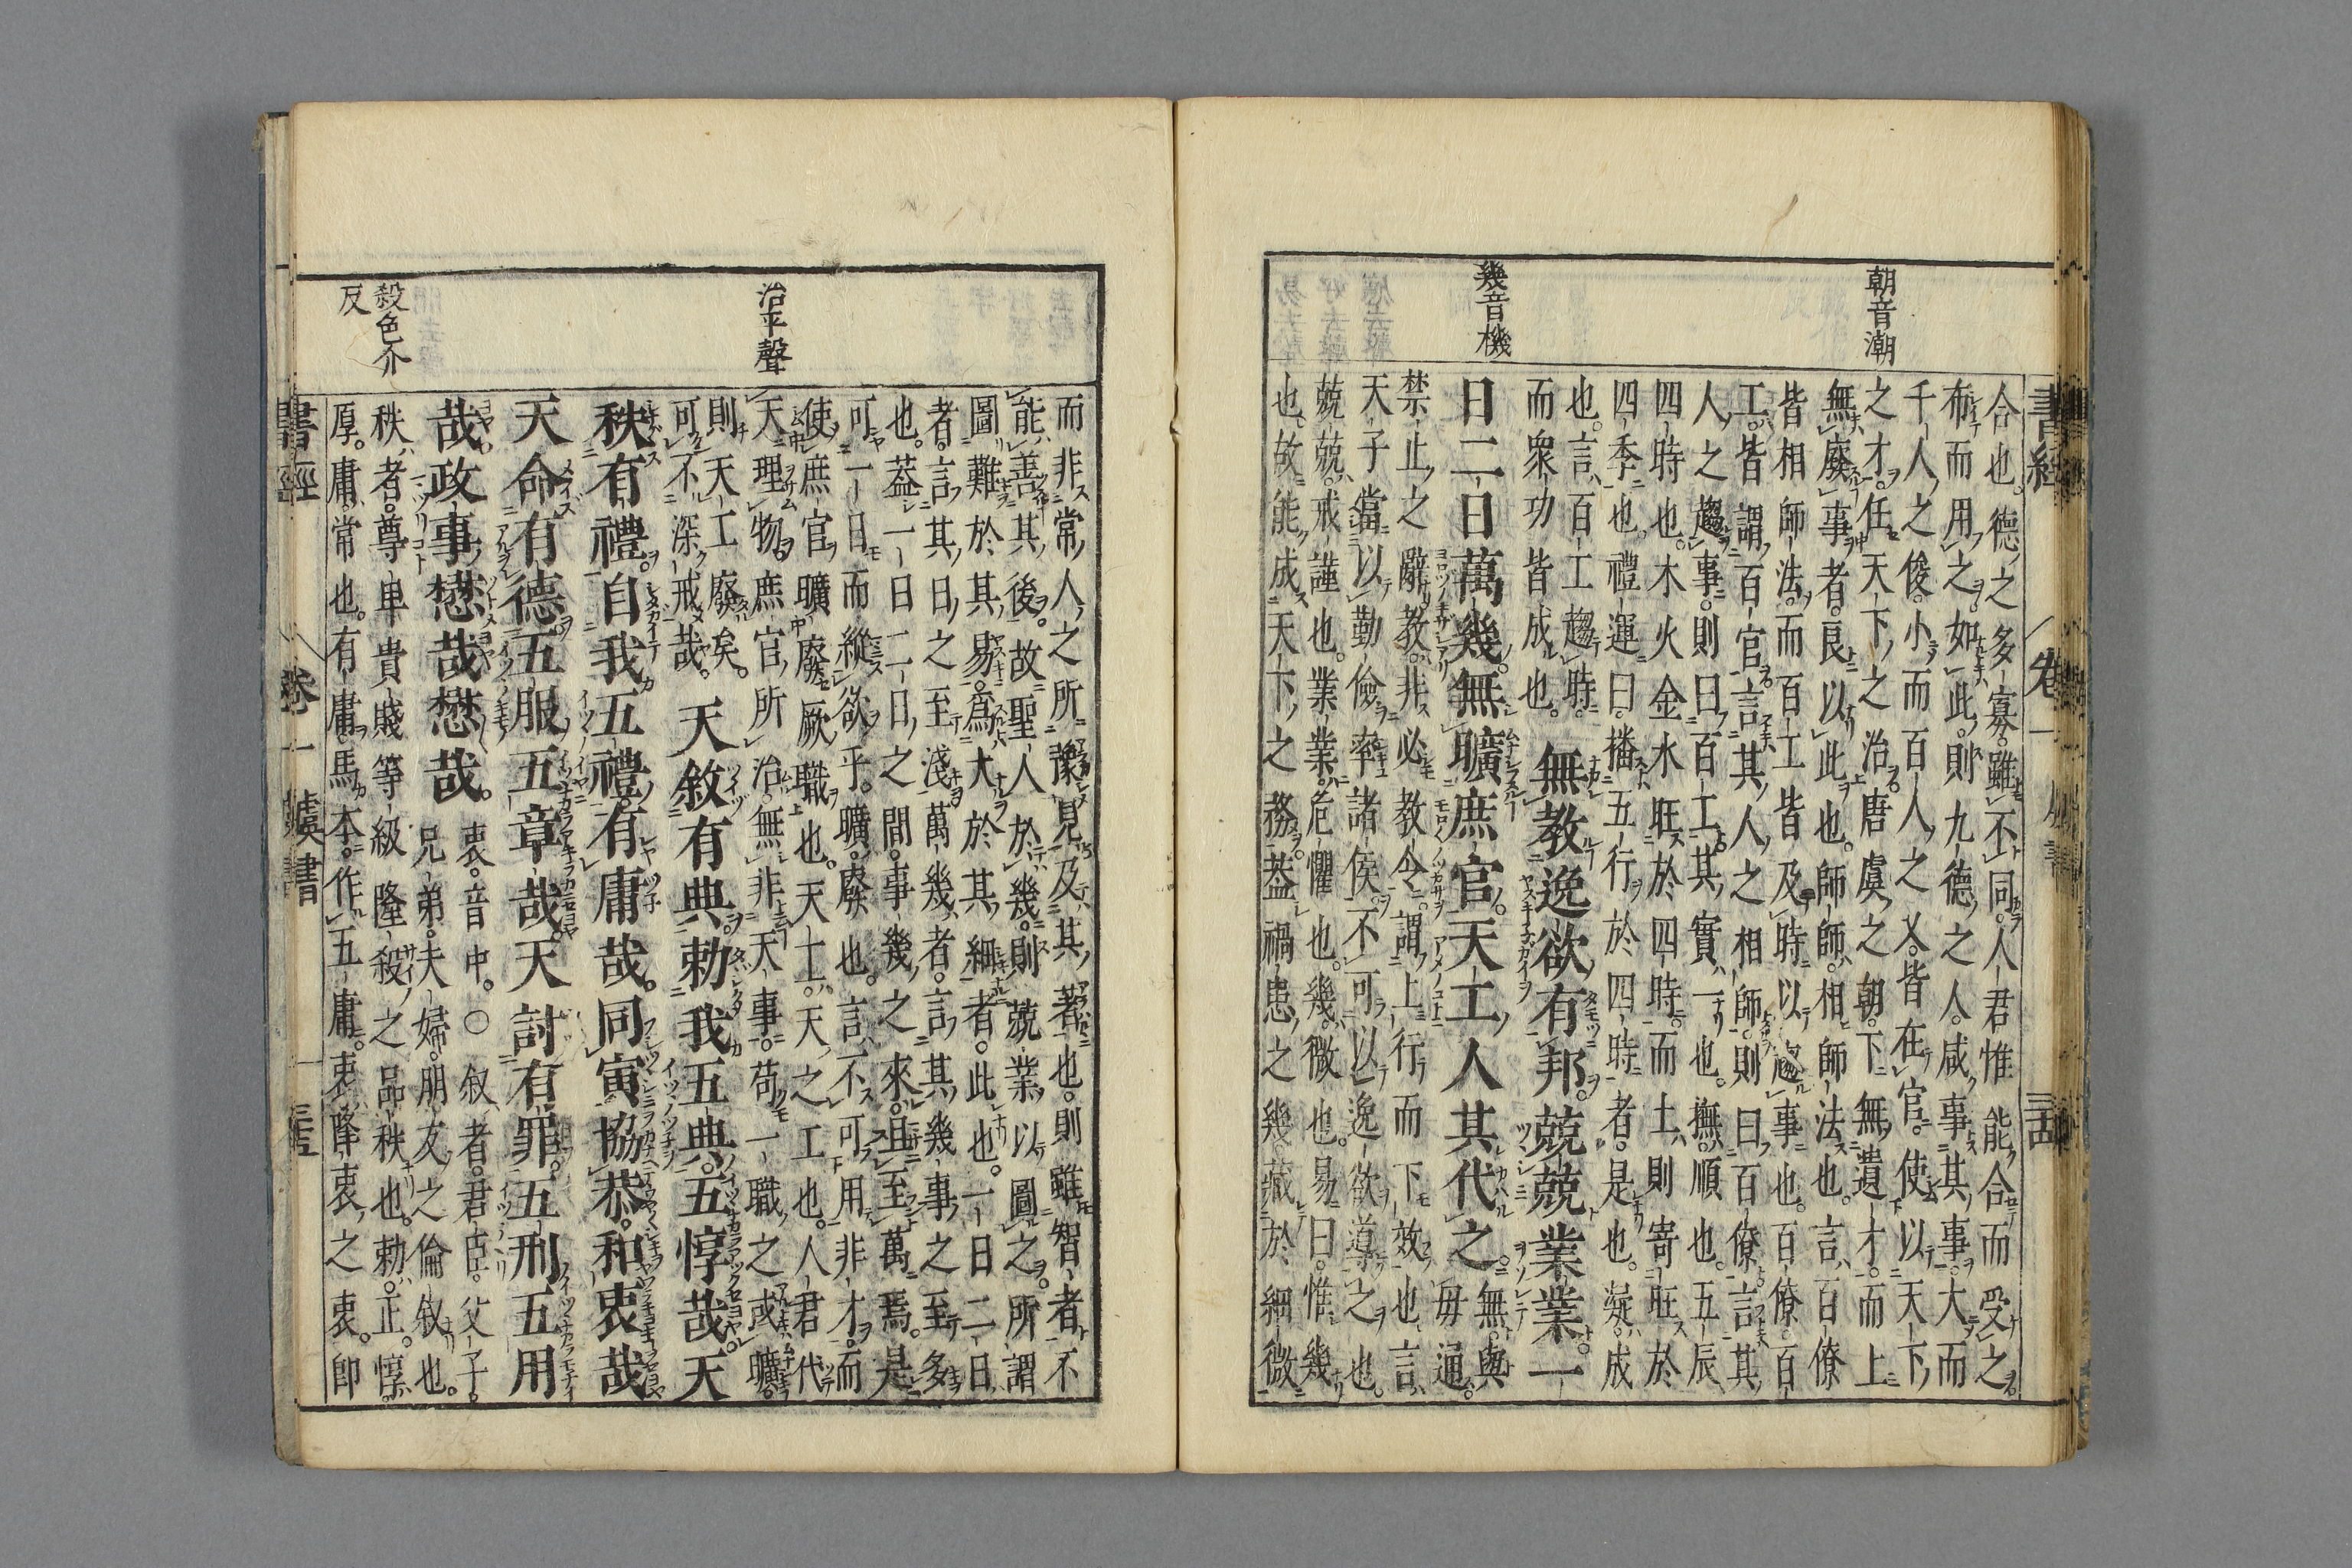 朝音潮
幾音機
合也。德之多寡。雖不同。人君惟能合而受之
布而用之。如此則九德之人。咸事其事。大而
千人之俊。小而百人之乂。皆在官。使以天下
之才。任天下之治。唐虞之朝。下無遺才。而上
無廢事者。良以此也。師師。相師法也。言百僚
皆相師法。而百工皆及時以趨事也。百僚百
工。皆謂百官。言其人之相師。則曰百僚。言其
人之趨事。則曰百工。其實一也。撫。順也。五辰
四時也。木火金水旺於四時。而土則寄旺於
四季也。禮運曰。播五行於四時者。是也。凝。成
也。言百工趨時。
而衆功皆成也。
無教逸欲有邦。兢兢業業。一
日二日萬幾。無曠庶官。天工人其代之。
無。與
毋通。
禁止之辭。教。非必教令。謂上行而下效也。言
天子當以勤儉率諸侯。不可以逸欲導之也。
兢兢。戒謹也。業業。危懼也。幾。微也。易曰。惟幾
也。故能成天下之務。蓋禍患之幾。藏於細微
治平聲
殺色介
反
而非常人之所豫見。及其著也。則雖智者。不
能善其後。故聖人於幾。則兢業以圖之。所謂
圖難於其易。爲大於其細者。此也。一日二日
者。言其日之至淺。萬幾者。言其幾事之至多
也。蓋一日二日之間。事幾之來。且至萬焉。是
可一日而縱欲乎。曠。廢也。言不可用非才。而
使庶官曠廢厥職也。天工。天之工也。人君代
天理物。庶官所治。無非天事。苟一職之或曠。
則天工廢矣。
可不深戒哉。
天敘有典。勅我五典。五惇哉。天
秩有禮。自我五禮。有庸哉。同寅協恭。和衷哉
天命有德。五服五章哉。天討有罪。五刑五用
哉。政事懋哉懋哉。
衷。音中。○叙者。君臣。父子。
兄弟。夫婦。朋友之倫叙也。
秩者。尊卑貴賤等級隆殺之品秩也。勅。正。惇
厚。庸。常也。有庸。馬本作五庸。衷。降衷之衷。卽
書經 卷一 虞書 三五